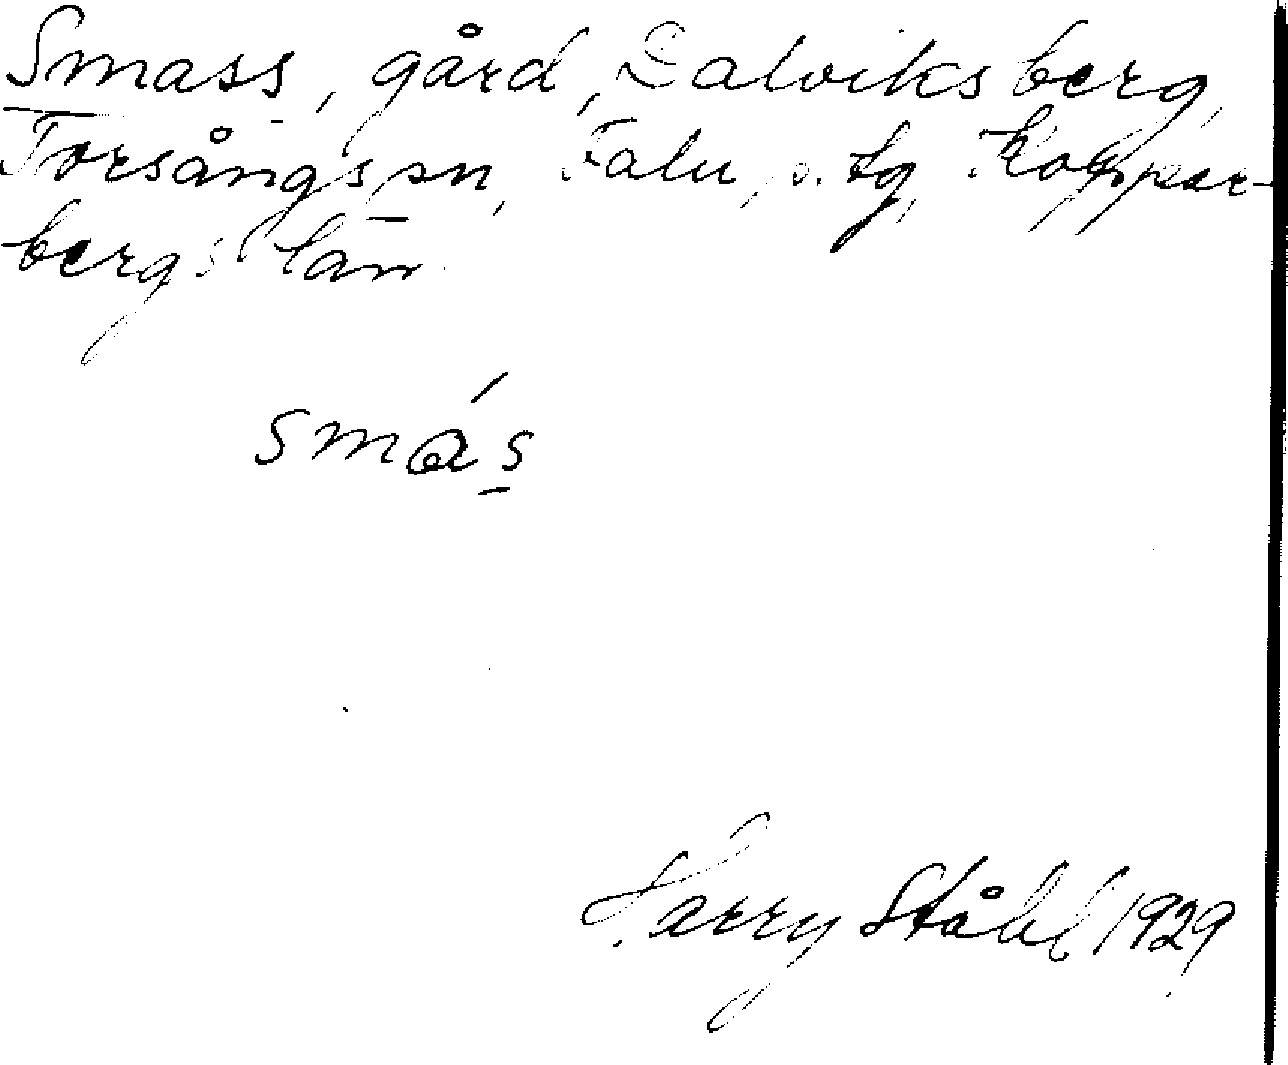 Smass, gård, Dalviksberg,
Torsångs sn, Falu s. tg, Koppar-
bergs län
smɑ́s
Harry Ståhl 1929